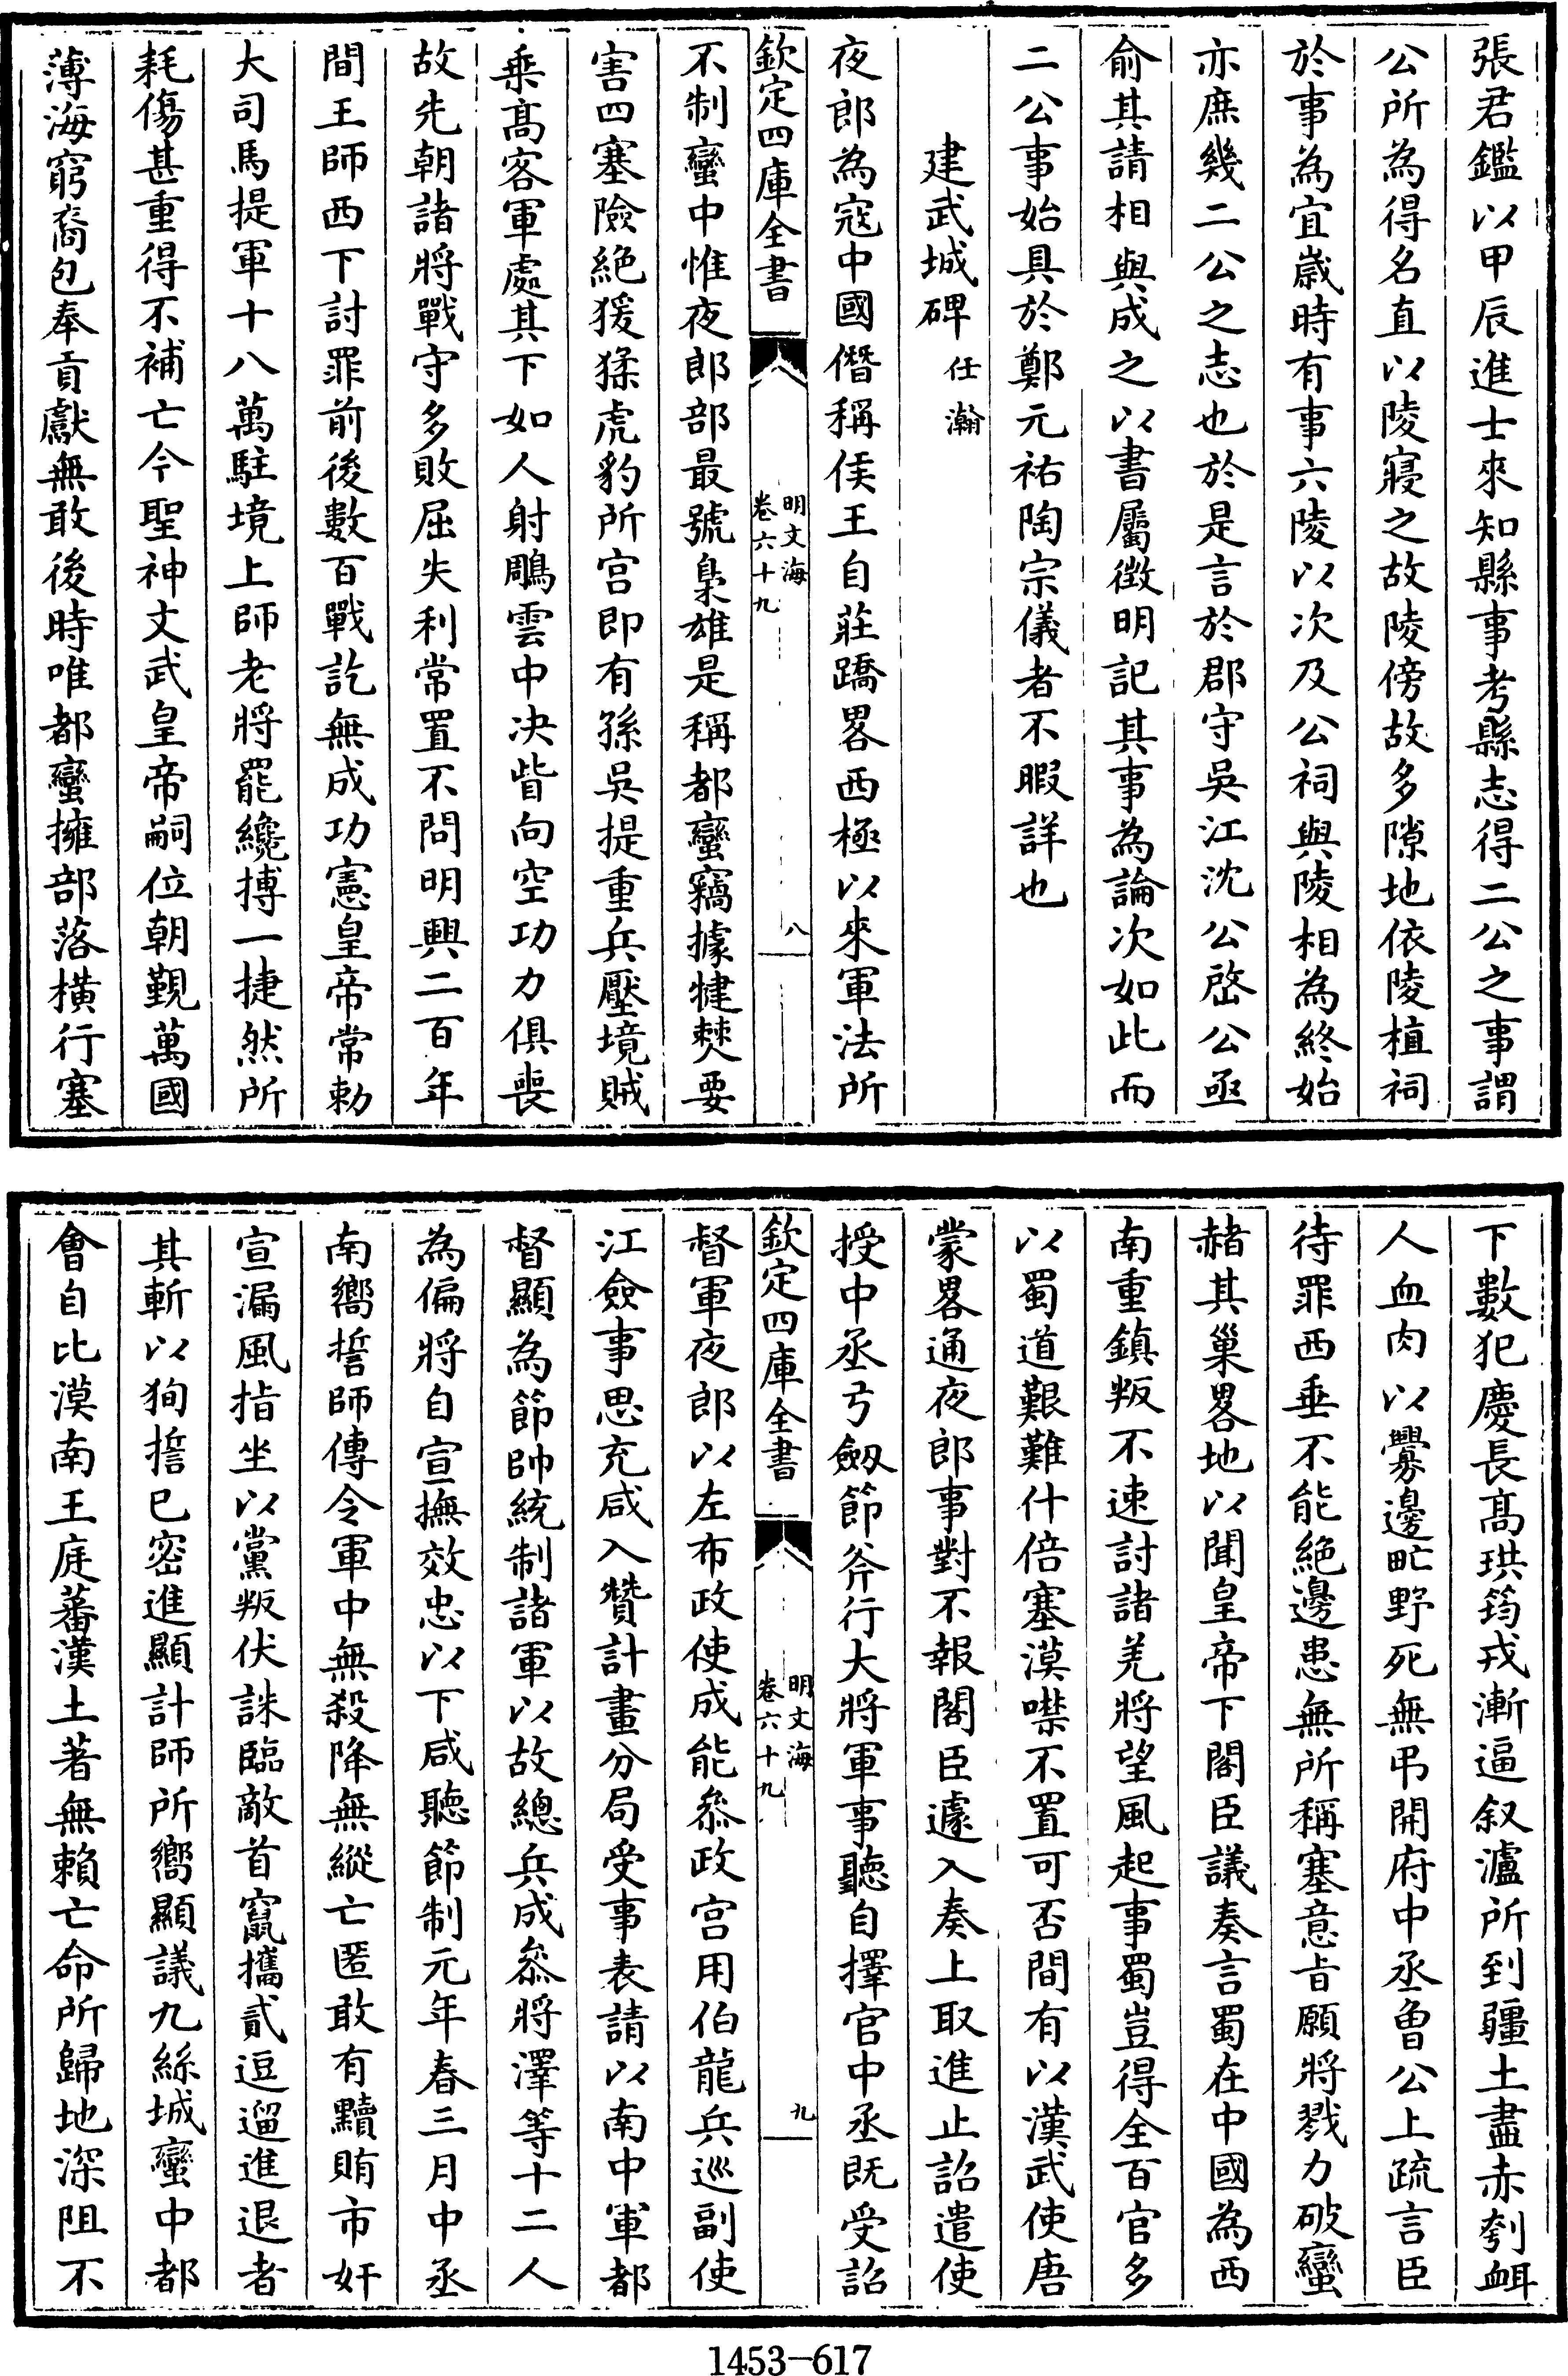 張君鑑以甲辰進士來知縣事考縣志得二公之事謂
公所為得名直以陵寢之故陵傍故多隙地依陵植祠
於事為宜歲時有事六陵以次及公祠與陵相為終始
亦庶幾二公之志也於是言於郡守吳江沈公啓公亟
俞其請相與成之以書屬徴明記其事為論次如此而
二公事始具於鄭元祐陶宗儀者不暇詳也
建武城碑 任瀚
夜郎為寇中國僭稱侯王自莊蹻畧西極以來軍法所
欽定四庫全書
明文海
卷六十九
八
不制蠻中惟夜郎部最號梟雄是稱都蠻竊據犍僰要
害四塞險絶猨猱虎豹所宫即有孫吳提重兵壓境賊
乗髙客軍處其下如人射鵰雲中决眥向空功力俱喪
故先朝諸將戰守多敗屈失利常置不問明興二百年
間王師西下討罪前後數百戰訖無成功憲皇帝常勅
大司馬提軍十八萬駐境上師老將罷纔搏一捷然所
耗傷甚重得不補亡今聖神文武皇帝嗣位朝覲萬國
薄海窮裔包奉貢獻無敢後時唯都蠻擁部落横行塞
下數犯慶長髙珙筠戎漸逼叙瀘所到疆土盡赤刳衈
人血肉以釁邊甿野死無弔開府中丞曾公上疏言臣
待罪西垂不能絶邊患無所稱塞意㫖願將戮力破蠻
赭其巢畧地以聞皇帝下閣臣議奏言蜀在中國為西
南重鎮叛不速討諸羌將望風起事蜀豈得全百官多
以蜀道艱難什倍塞漠噤不置可否間有以漢武使唐
蒙畧通夜郎事對不報閣臣遽入奏上取進止詔遣使
授中丞弓劔節斧行大將軍事聽自擇官中丞既受詔
欽定四庫全書
明文海
卷六十九
九
督軍夜郎以左布政使成能叅政宫用伯龍兵巡副使
江僉事思充咸入贊計畫分局受事表請以南中軍都
督顯為節帥統制諸軍以故總兵成叅將澤等十二人
為偏將自宣撫效忠以下咸聽節制元年春三月中丞
南嚮誓師傳令軍中無殺降無縱亡匿敢有黷賄市奸
宣漏風指坐以黨叛伏誅臨敵首竄攜貳逗遛進退者
其斬以狥誓已密進顯計師所嚮顯議九絲城蠻中都
會自比漠南王庭蕃漢土著無賴亡命所歸地深阻不
1453-617